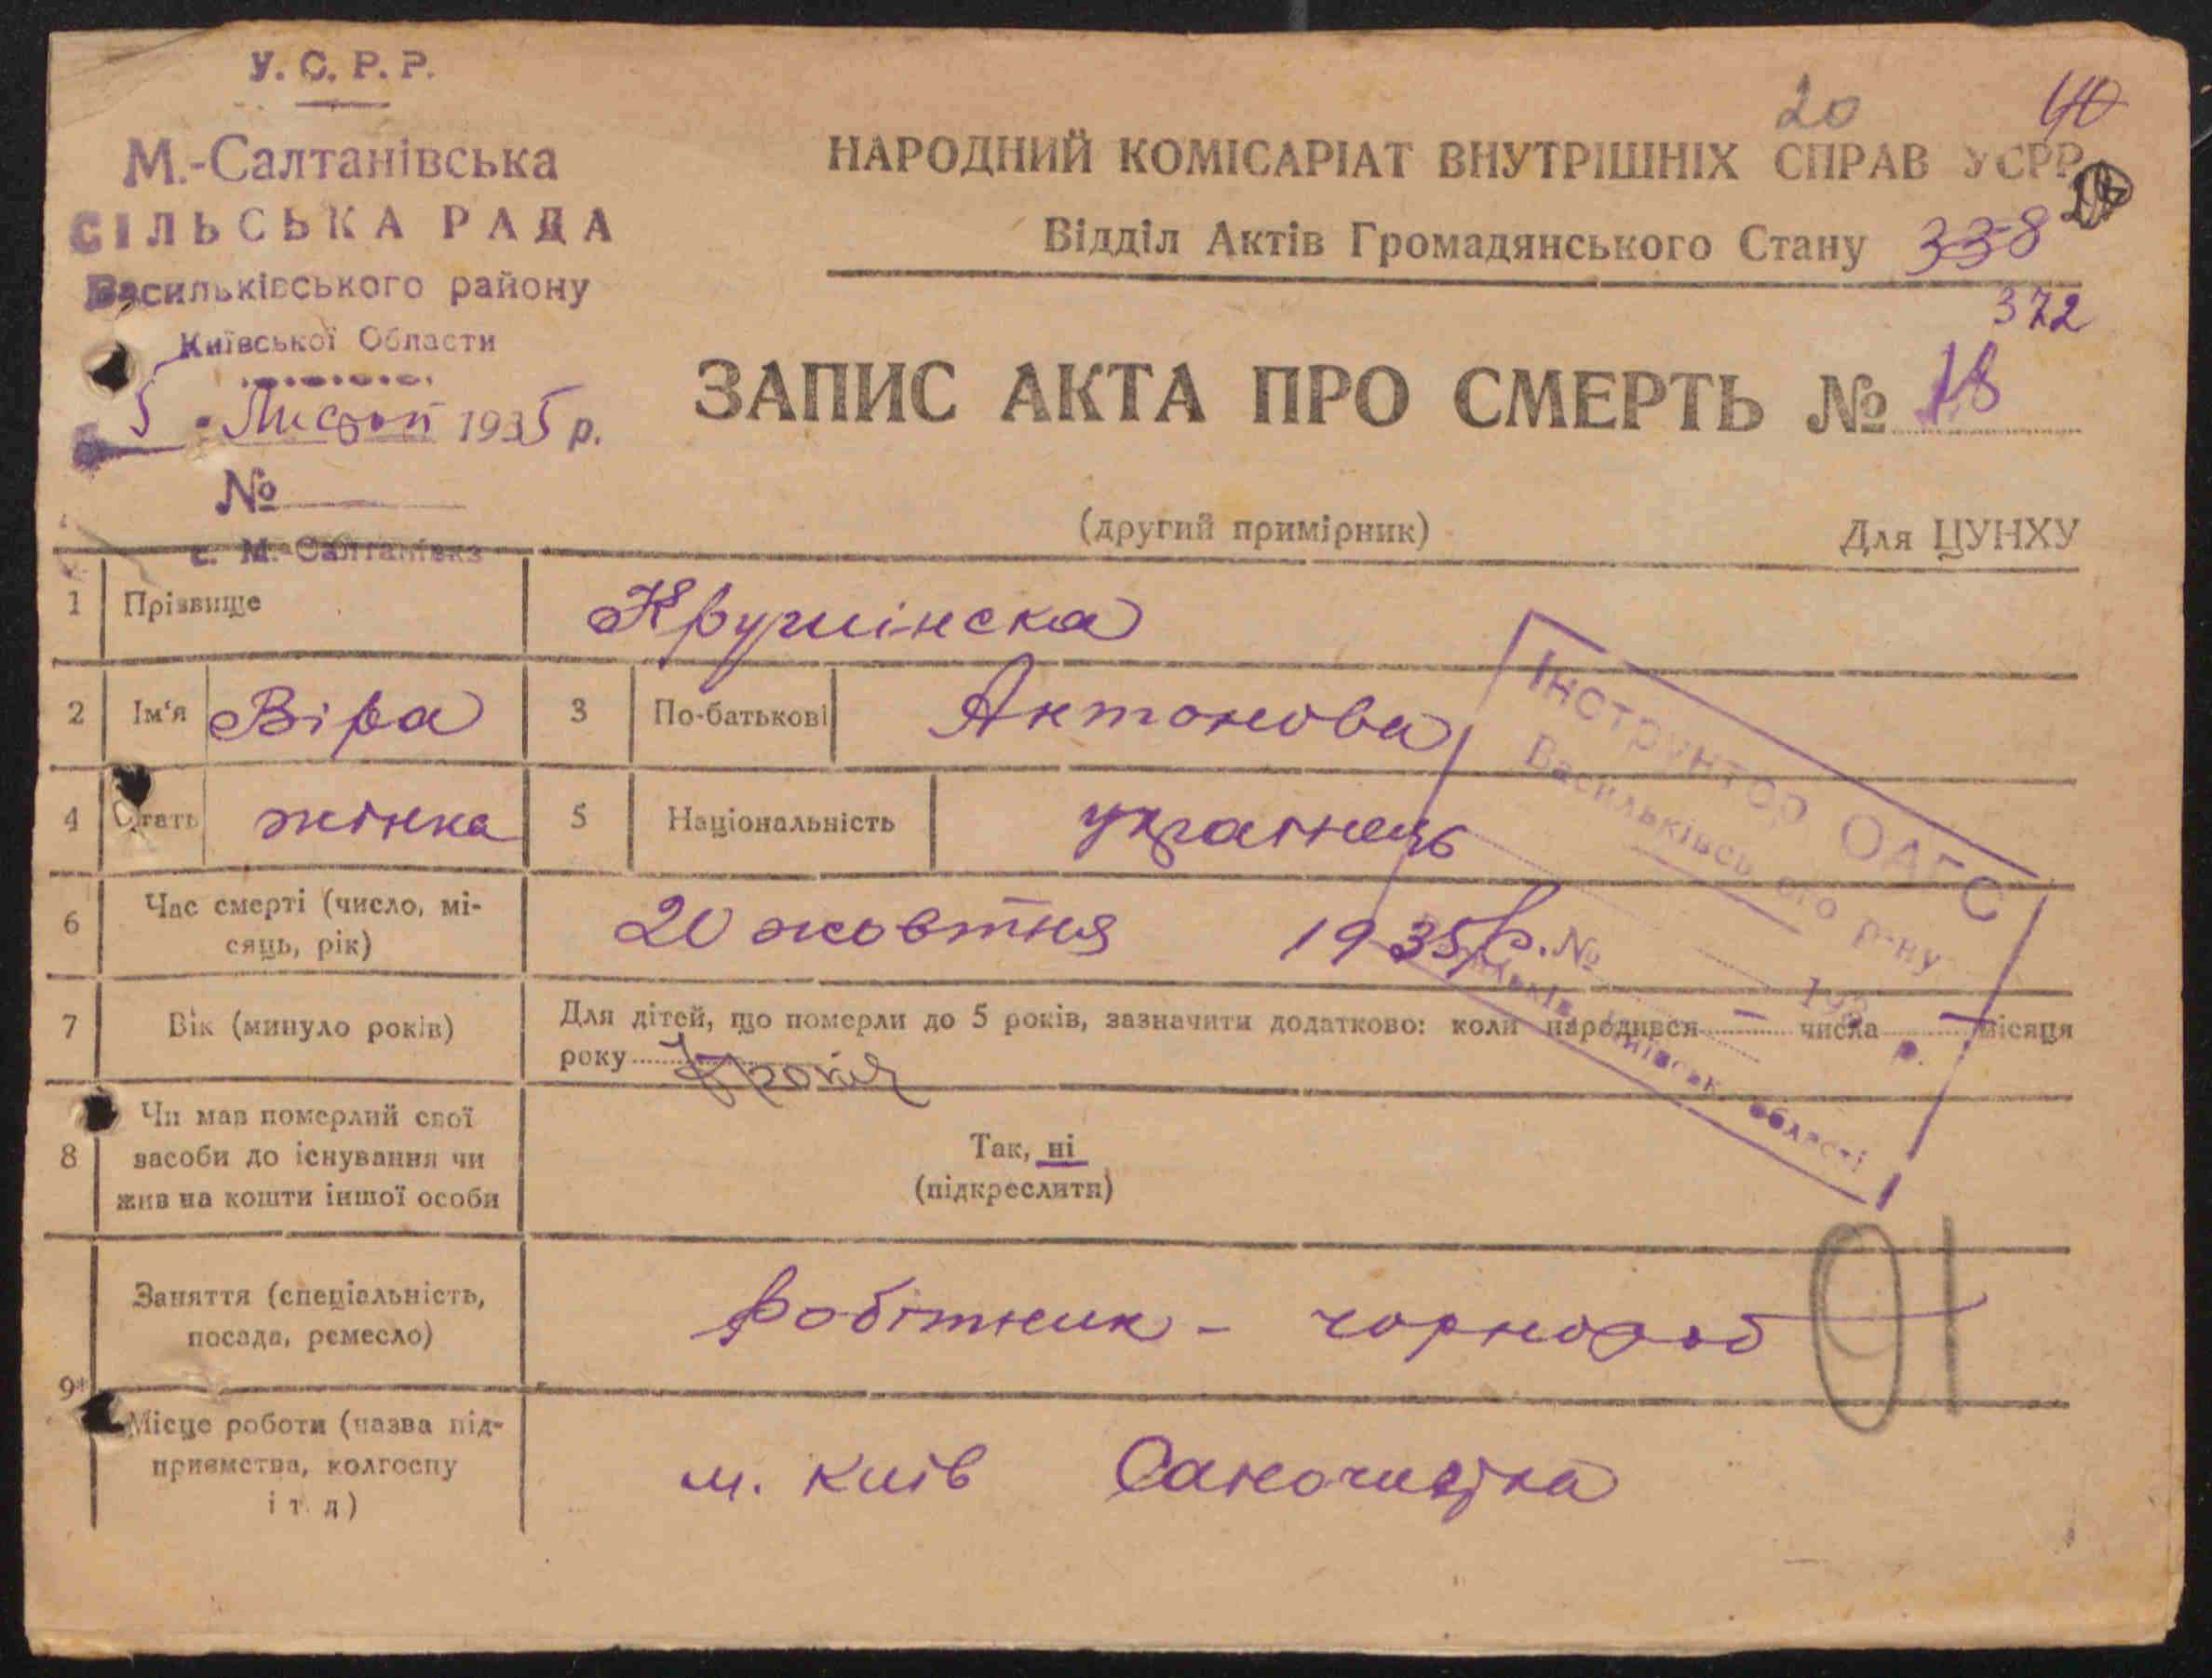 У.С.Р.Р.
М.-Салтанівська
СІЛЬСЬКА РАДА
Васильківського району
Київської Области
5 Листоп 1935 р.
№
с. М.-Салтанівка
20
40
НАРОДНИЙ КОМІСАРІАТ ВНУТРІШНІХ СПРАВ УСРР
Відділ Актів Громадянського Стану 338
372
ЗАПИС АКТА ПРО СМЕРТЬ № 18
(другий примірник)
Для ЦУНХУ
1 Прізвище Крушінска
2 Ім'я Віра 3 По-батькові Антонова
4 Стать жінка 5 Національність українець
6 Час смерті (число, мі-
сяць, рік) 20 жовтня 1935 р.
7 Вік (минуло років) Для дітей, що померли до 5 років, зазначити додатково: коли народився — числа — місяця
року
8 Чи мав померлий свої
засоби до існування чи
жив на кошти іншої особи
Так, ні
(підкреслити)
9*
Заняття (спеціальність,
посада, ремесло) робітник - чорнороб
01
Місце роботи (назва під-
приємства, колгоспу
і т. д) м. Київ
Інструктор ОАГС
Васильківського р-ну
№
193 р.
області